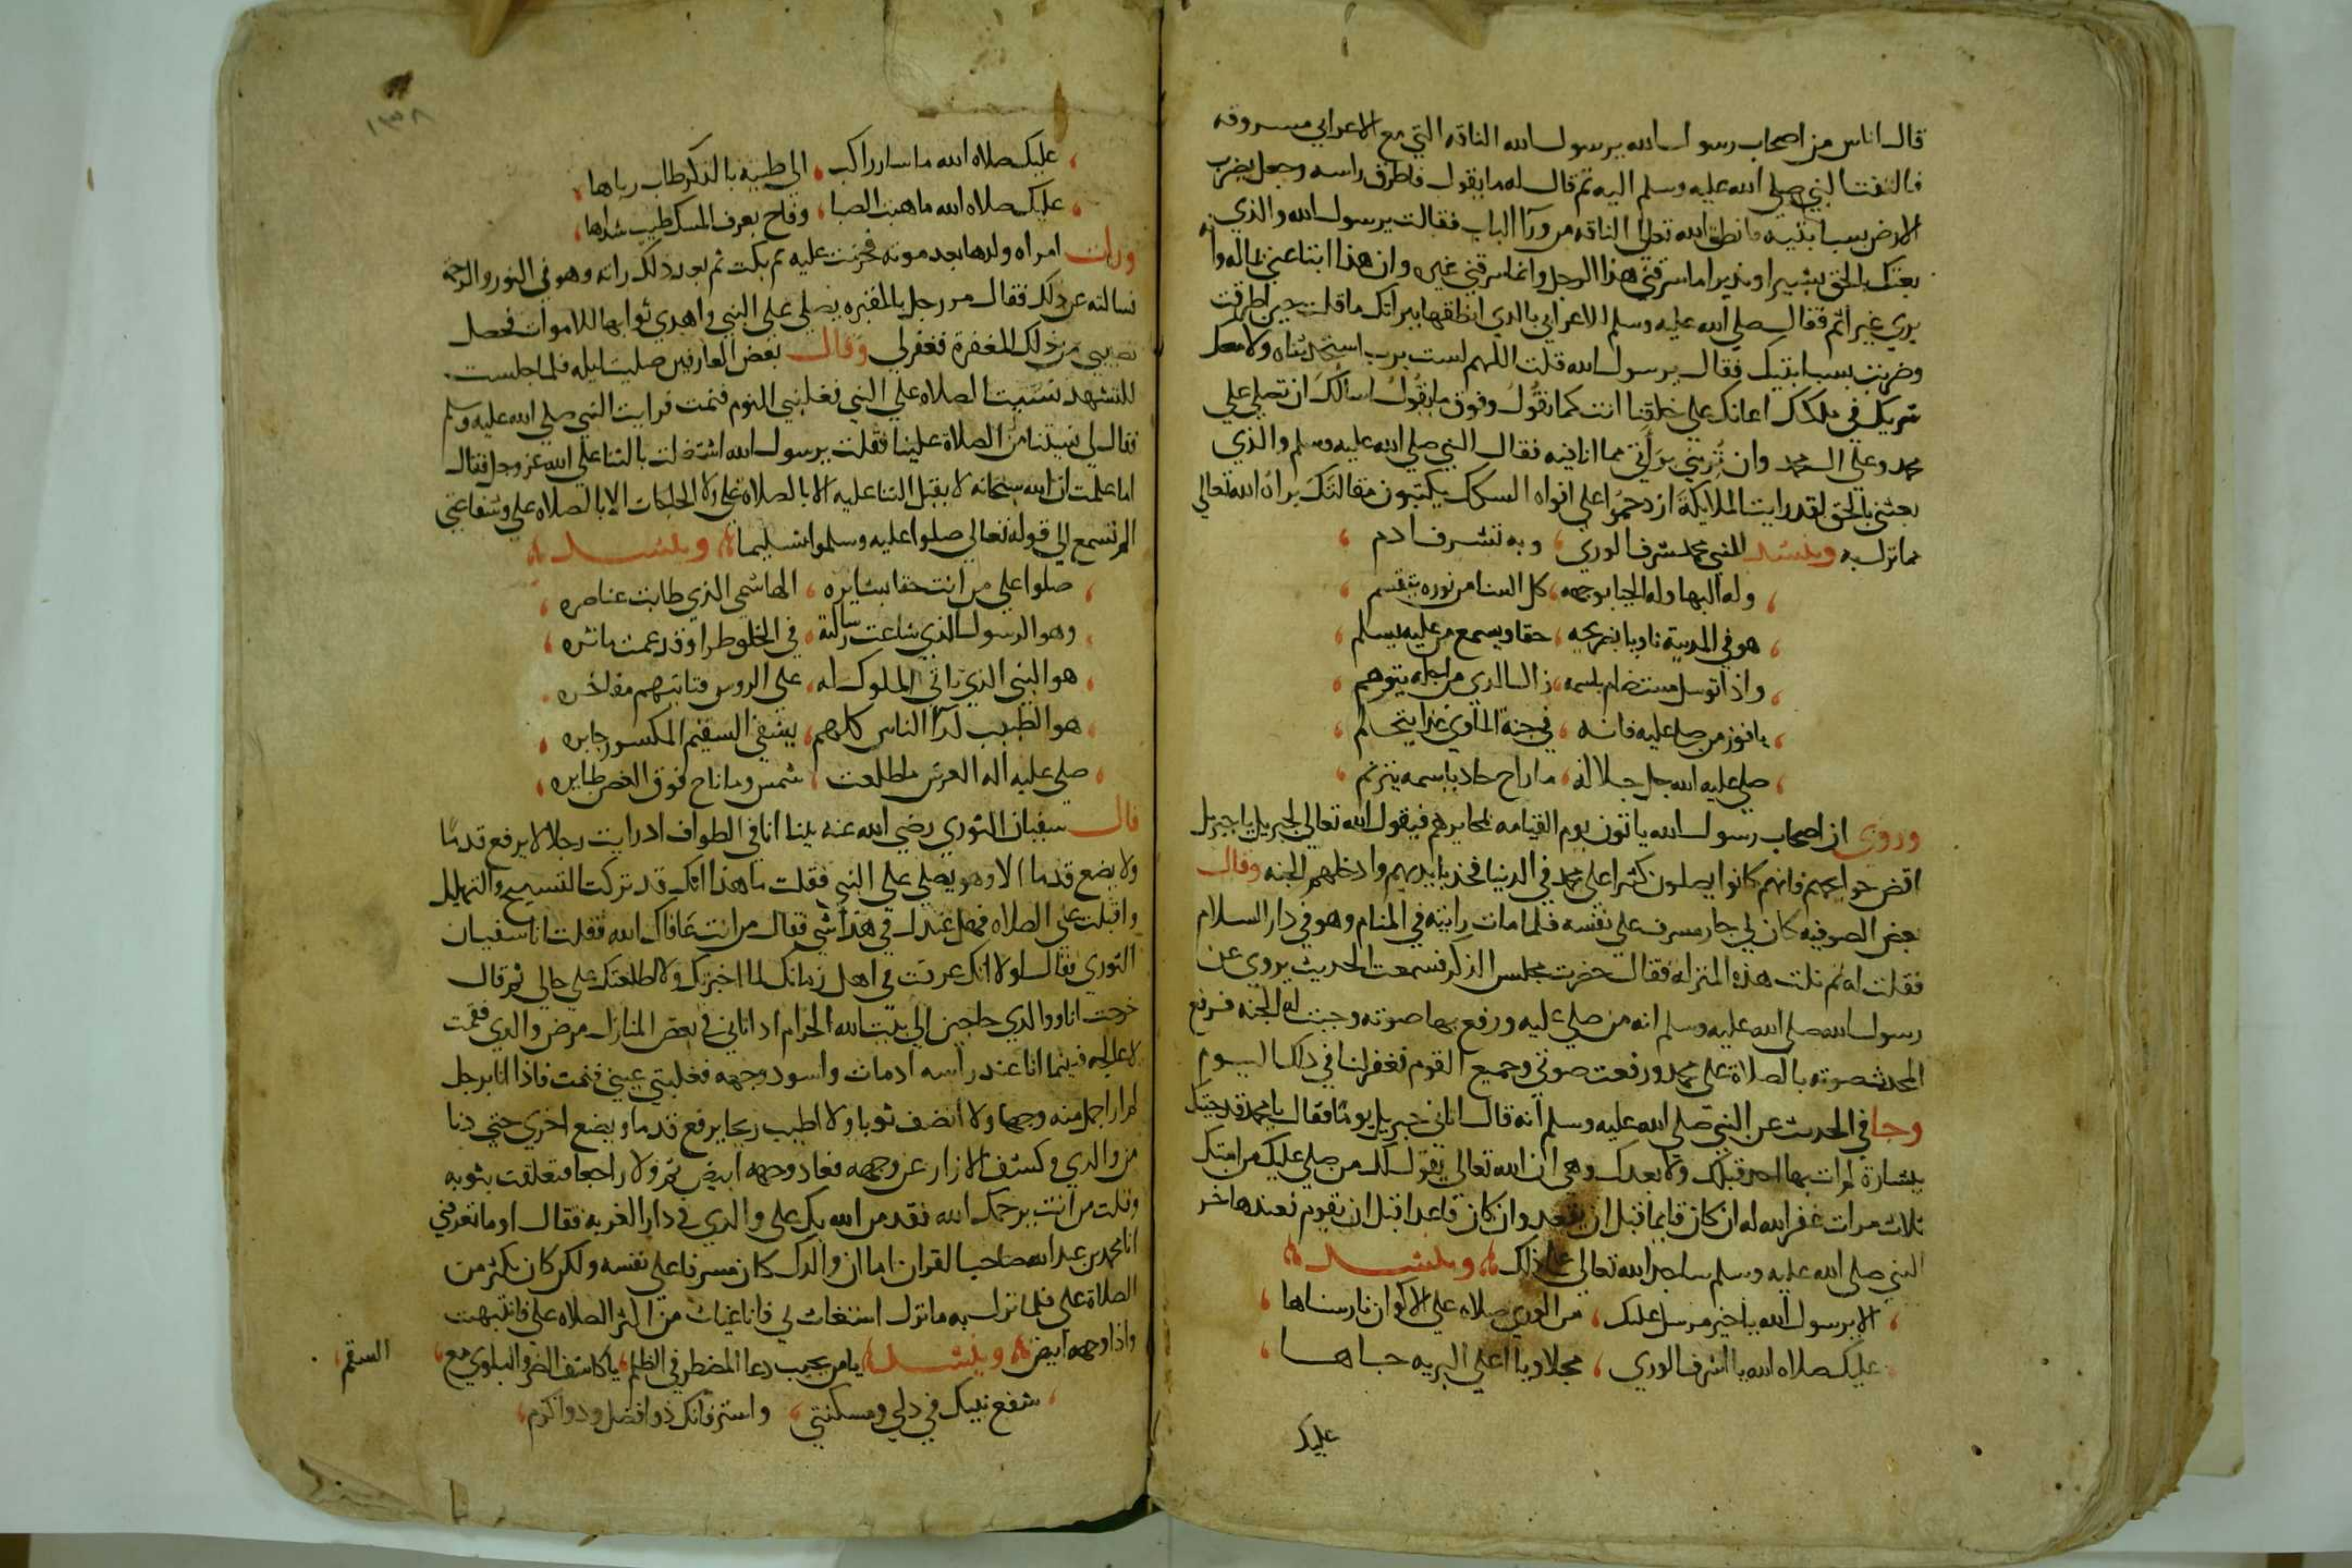 قال اناس من اصحاب رسول الله يرسول الله الناقه التي مع الاعرابي مسروقه
فالتفت النبي صلي الله عليه وسلم اليه ثم قال له ما يقول فاطرق راسه وجعل يضرب
الارض بسبابتيه فانطق الله تعالي الناقه من ورآ الباب فقالت يرسول الله والذي
بعثك بالحق بشيرا ونذيرا ما سرقني هذا الرجل وانما سرقني غيره وان هذا ابتاعني بماله وانه
بري غير آثم فقال صلي الله عليه وسلم للاعرابي بالذي انطقها ببراتك ما قلت حين اطرقت
وضربت بسبابتيك فقال يرسول الله قلت اللهم لست برب استحدثناه ولا معك
شريك في ملكك اعانك علي خلقنا انت كما نقول وفوق ما يقول اسالك ان تصلي علي
محمد وعلي ال محمد وان تريني برأتي مما انا فيه فقال النبي صلي الله عليه وسلم والذي
بعثني بالحق لقد رايت الملايكة ازدحموا علي افواه السكك يكتبون مقالتك براك الله تعالي
مما نزل به وينشد للنبي محمد شرف الوري ، وبه تشرف ادم ،
، وله البها وله الحيا بوجهه ، كل السنا من نوره يتقسم ،
، هو في المدينة ثاويا بضريحه ، حقا ويسمع من عليه يسلم ،
، واذا توسل مستضام باسمه ، زال الذي من اجله يتوهم ،
، يا فوز من صلي عليه فانه ، في جنة الماوي غدا يتحكم ،
، صلي عليه الله جل جلاله ، ما راح حاد باسمه يترنم ،
وروي ان اصحاب رسول الله ياتون يوم القيامه بمحابرهم فيقول الله تعالي لجبريل يا جبريل
اقض حوايجهم فانهم كانوا يصلون كثيرا علي محمد في الدنيا فخذ بايديهم وادخلهم الجنه وقال
بعض الصوفيه كان لي جار مسرف علي نفسه فلما مات رايته في المنام وهو في دار السلام
فقلت له بم نلت هذه المنزله فقال حضرت مجلس الذكر فسمعت الحديث يروي عن
رسول الله صلي الله عليه وسلم انه من صلي عليه ورفع بها صوته وجبت له الجنه فرفع
المحدث صوته بالصلاة علي محمد ورفعت صوتي وجميع القوم فغفر لنا في ذلك اليوم
وجا في الحديث عن النبي صلي الله عليه وسلم انه قال اتاني جبريل يوما فقال يا محمد قد جيتك
ببشارة لم ات بها احد قبلك ولا بعدك وهي ان الله تعالي يقول لك من صلي عليك من امتك
ثلاث مرات غفر الله له ان كان قايما قبل ان يقعد وان كان قاعدا قبل ان يقوم فعندها خر
النبي صلي الله عليه وسلم ساجدا لله تعالي علي ذلك وينشد
، الا يرسول الله يا خير مرسل عليك ، من الوري صلاة علي الاكوان فار سناها ،
عليك صلاه الله يا اشرف الوري ، محلا ويا اعلي البريه جاها ،
عليك
١٣٨
، عليك صلاه الله ما سار راكب ، الي طيبة بالذكر طاب رباها ،
، عليك صلاه الله ما هبت الصبا ، وفاح بعرف المسك طيب شذاها ،
ورات امراه ولدها بعد موته فحزنت عليه ثم بكت ثم بعد ذلك راته وهو في النور والرحمة
فسالته عن ذلك فقال مر رجل بالمقبره يصلي علي النبي واهدي ثوابها للاموات فحصل
نصيبي من ذلك المغفرة فغفر لي وقال بعض العارفين صليت ليله فلما جلست
للتشهد نسيت الصلاه علي النبي فغلبني النوم فنمت فرايت النبي صلي الله عليه وسلم
فقال لي نسيتنا من الصلاة علينا فقلت يرسول الله اشتغلت بالثنا علي الله عز وجل فقال
اما علمت ان الله سبحانه لا يقبل الثنا عليه الا بالصلاة علي ولا الحاجات الا بالصلاه علي وشفاعتي
الم تسمع الي قوله تعالي صلوا عليه وسلموا تسليما وينشد
، صلوا علي من اتت حقا بشايره ، الهاشمي الذي طابت عناصره ،
، وهو الرسول الذي شاعت رسالته ، في الخلق طرا وقد عمت ماثره ،
، هو النبي الذي تاتي الملوك له ، علي الروس فتاتيهم مفاخره ،
، هو الطبيب لدآ الناس كلهم ، يشفي السقيم المكسور جابره ،
، صلي عليه اله العرش ما طلعت ، شمس وما ناح فوق الغصن طايره ،
قال سفيان الثوري رضي الله عنه بينا انا في الطواف اذ رايت رجلا لا يرفع قدما
ولا يضع قدما الا وهو يصلي علي النبي فقلت ما هذا انك قد تركت التسبيح والتهليل
واقبلت علي الصلاه فهل عندك في هذا شي فقال من انت عافاك الله فقلت انا سفيان
الثوري فقال لولا انك عرفت في اهل زمانك لما اخبرتك ولا اطلعتك علي حالي ثم قال
خرجت انا ووالدي حاجين الي بيت الله الحرام اذ اناني في بعض المنازل مرض والدي فقمت
لاعالجه فبينما انا عند راسه اذ مات واسود وجهه فغلبتني عيني فنمت فاذا انا برجل
لم ار اجمل منه وجها ولا انضف ثوبا ولا اطيب ريحا يرفع قدما ويضع اخري حتي دنا
من والدي وكشف الازار عن وجهه فعاد وجهه ابيض ثم ولا راجعا فتعلقت بثوبه
وقلت من انت يرحمك الله فقد من الله بك علي والدي في دار الغربه فقال اوما تعرفني
انا محمد بن عبد الله صاحب القران اما ان والدك كان مسرفا علي نفسه ولكن كان يكثر من
الصلاة علي فلما نزل به ما نزل استغاث بي فانا غياث من اكثر الصلاه علي فانتبهت
واذا وجهه ابيض وينشد يا من يجيب دعا المضطر في الظلم ، يا كاشف الضر والبلوي مع ، السقم ،
، شفع نبيك في ذلي ومسكنتي ، واستر فانك ذو افضل وذو اكرم ،